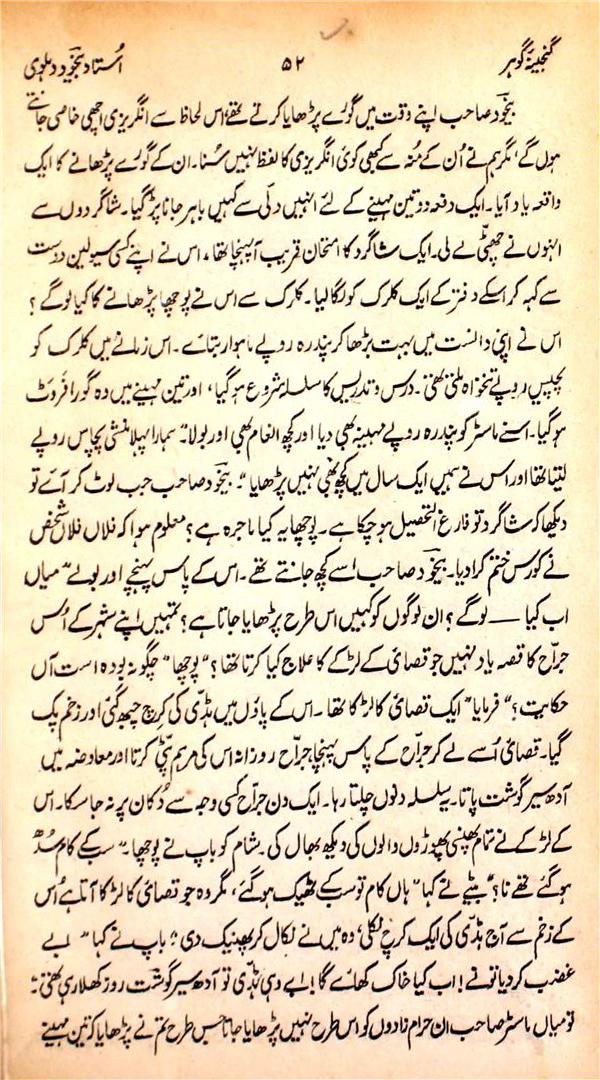 گنجینۂ گوہر ۵۲ اُستاد بیخودؔ دہلوی
بیخودؔ صاحب اپنے وقت میں گورے پڑھایا کرتے تھے، اس لحاظ سے انگریزی اچھی خاصی جانتے
ہوں گے، مگر ہم نے اُن کے مُنہ سے کبھی کوئی انگریزی کا لفظ نہیں سُنا۔ ان کے گورے پڑھانے کا ایک
واقعہ یاد آیا۔ ایک دفعہ دو تین مہینے کے لئے انہیں دلّی سے کہیں باہر جانا پڑ گیا۔ شاگردوں سے
انہوں نے چھٹی لے لی۔ ایک شاگرد کا امتحان قریب آ پہنچا تھا، اس نے اپنے کسی سویلین دوست
سے کہہ کر اسکے دفتر کے ایک کلرک کو لگا لیا۔ کلرک سے اس نے پوچھا پڑھانے کا کیا لوگے؟
اس نے اپنی دانست میں بہت بڑھا کر پندرہ روپے ماہوار بتائے۔ اس زمانے میں کلرک کو
پچیس روپے تنخواہ ملتی تھی۔ درس و تدریس کا سلسلہ شروع ہو گیا، اور تین مہینے میں وہ گورا فَروَٹ
ہو گیا۔ اسنے ماسٹر کو پندرہ روپے مہینہ بھی دیا اور کچھ انعام بھی اور بولا۔ "ہمارا پہلا منشی پچاس روپے
لیتا تھا اور اس نے ہمیں ایک سال میں کچھ بھی نہیں پڑھایا"۔ بیخودؔ صاحب جب لوٹ کر آئے تو
دیکھا کہ شاگرد تو فارغ التحصیل ہو چکا ہے۔ پوچھا یہ کیا ماجرہ ہے؟ معلوم ہوا کہ فلاں فلاں شخص
نے کورس ختم کرا دیا۔ بیخودؔ صاحب اسے کچھ جانتے تھے۔ اس کے پاس پہنچے اور بولے "میاں
اب کیا —— لوگے؟ ان لوگوں کو کہیں اس طرح پڑھایا جاتا ہے؟ تمہیں اپنے شہر کے اُس
جراّح کا قصہ یاد نہیں جو قصائی کے لڑکے کا علاج کیا کرتا تھا؟" پوچھا "چگونہ بودہ است آں
حکایت؟" فرمایا "ایک قصائی کا لڑکا تھا۔ اس کے پاؤں میں ہڈی کی کرچ چبھ گئی اور زخم پک
گیا۔ قصائی اُسے لے کر جراّح کے پاس پہنچا، جراّح روزانہ اس کی مرہم پٹّی کرتا اور معاوضہ میں
آدھ سیر گوشت پاتا۔ یہ سلسلہ دنوں چلتا رہا۔ ایک دن جراّح کسی وجہ سے دُکان پر نہ جا سکا۔ اس
کے لڑکے نے تمام پھنسی پھوڑوں والوں کی دیکھ بھال کی۔ شام کو باپ نے پوچھا۔ "سب کے کام سُدھ
ہو گئے تھے نا؟" بیٹے نے کہا "ہاں کام تو سب کے ٹھیک ہو گئے، مگر وہ جو قصائی کا لڑکا آتا ہے اُس
کے زخم سے آج ہڈی کی ایک کرچ نکلی، وہ میں نے نکال کر پھینک دی"؛ باپ نے کہا "ابے
غضب کر دیا تو نے! اب کیا خاک کھائے گا! ابے وہی ہڈی تو آدھ سیر گوشت روز کھلا رہی تھی"۔
تو میاں ماسٹر صاحب ان حرام زادوں کو اس طرح نہیں پڑھایا جاتا جس طرح تم نے پڑھایا کہ تین مہینے